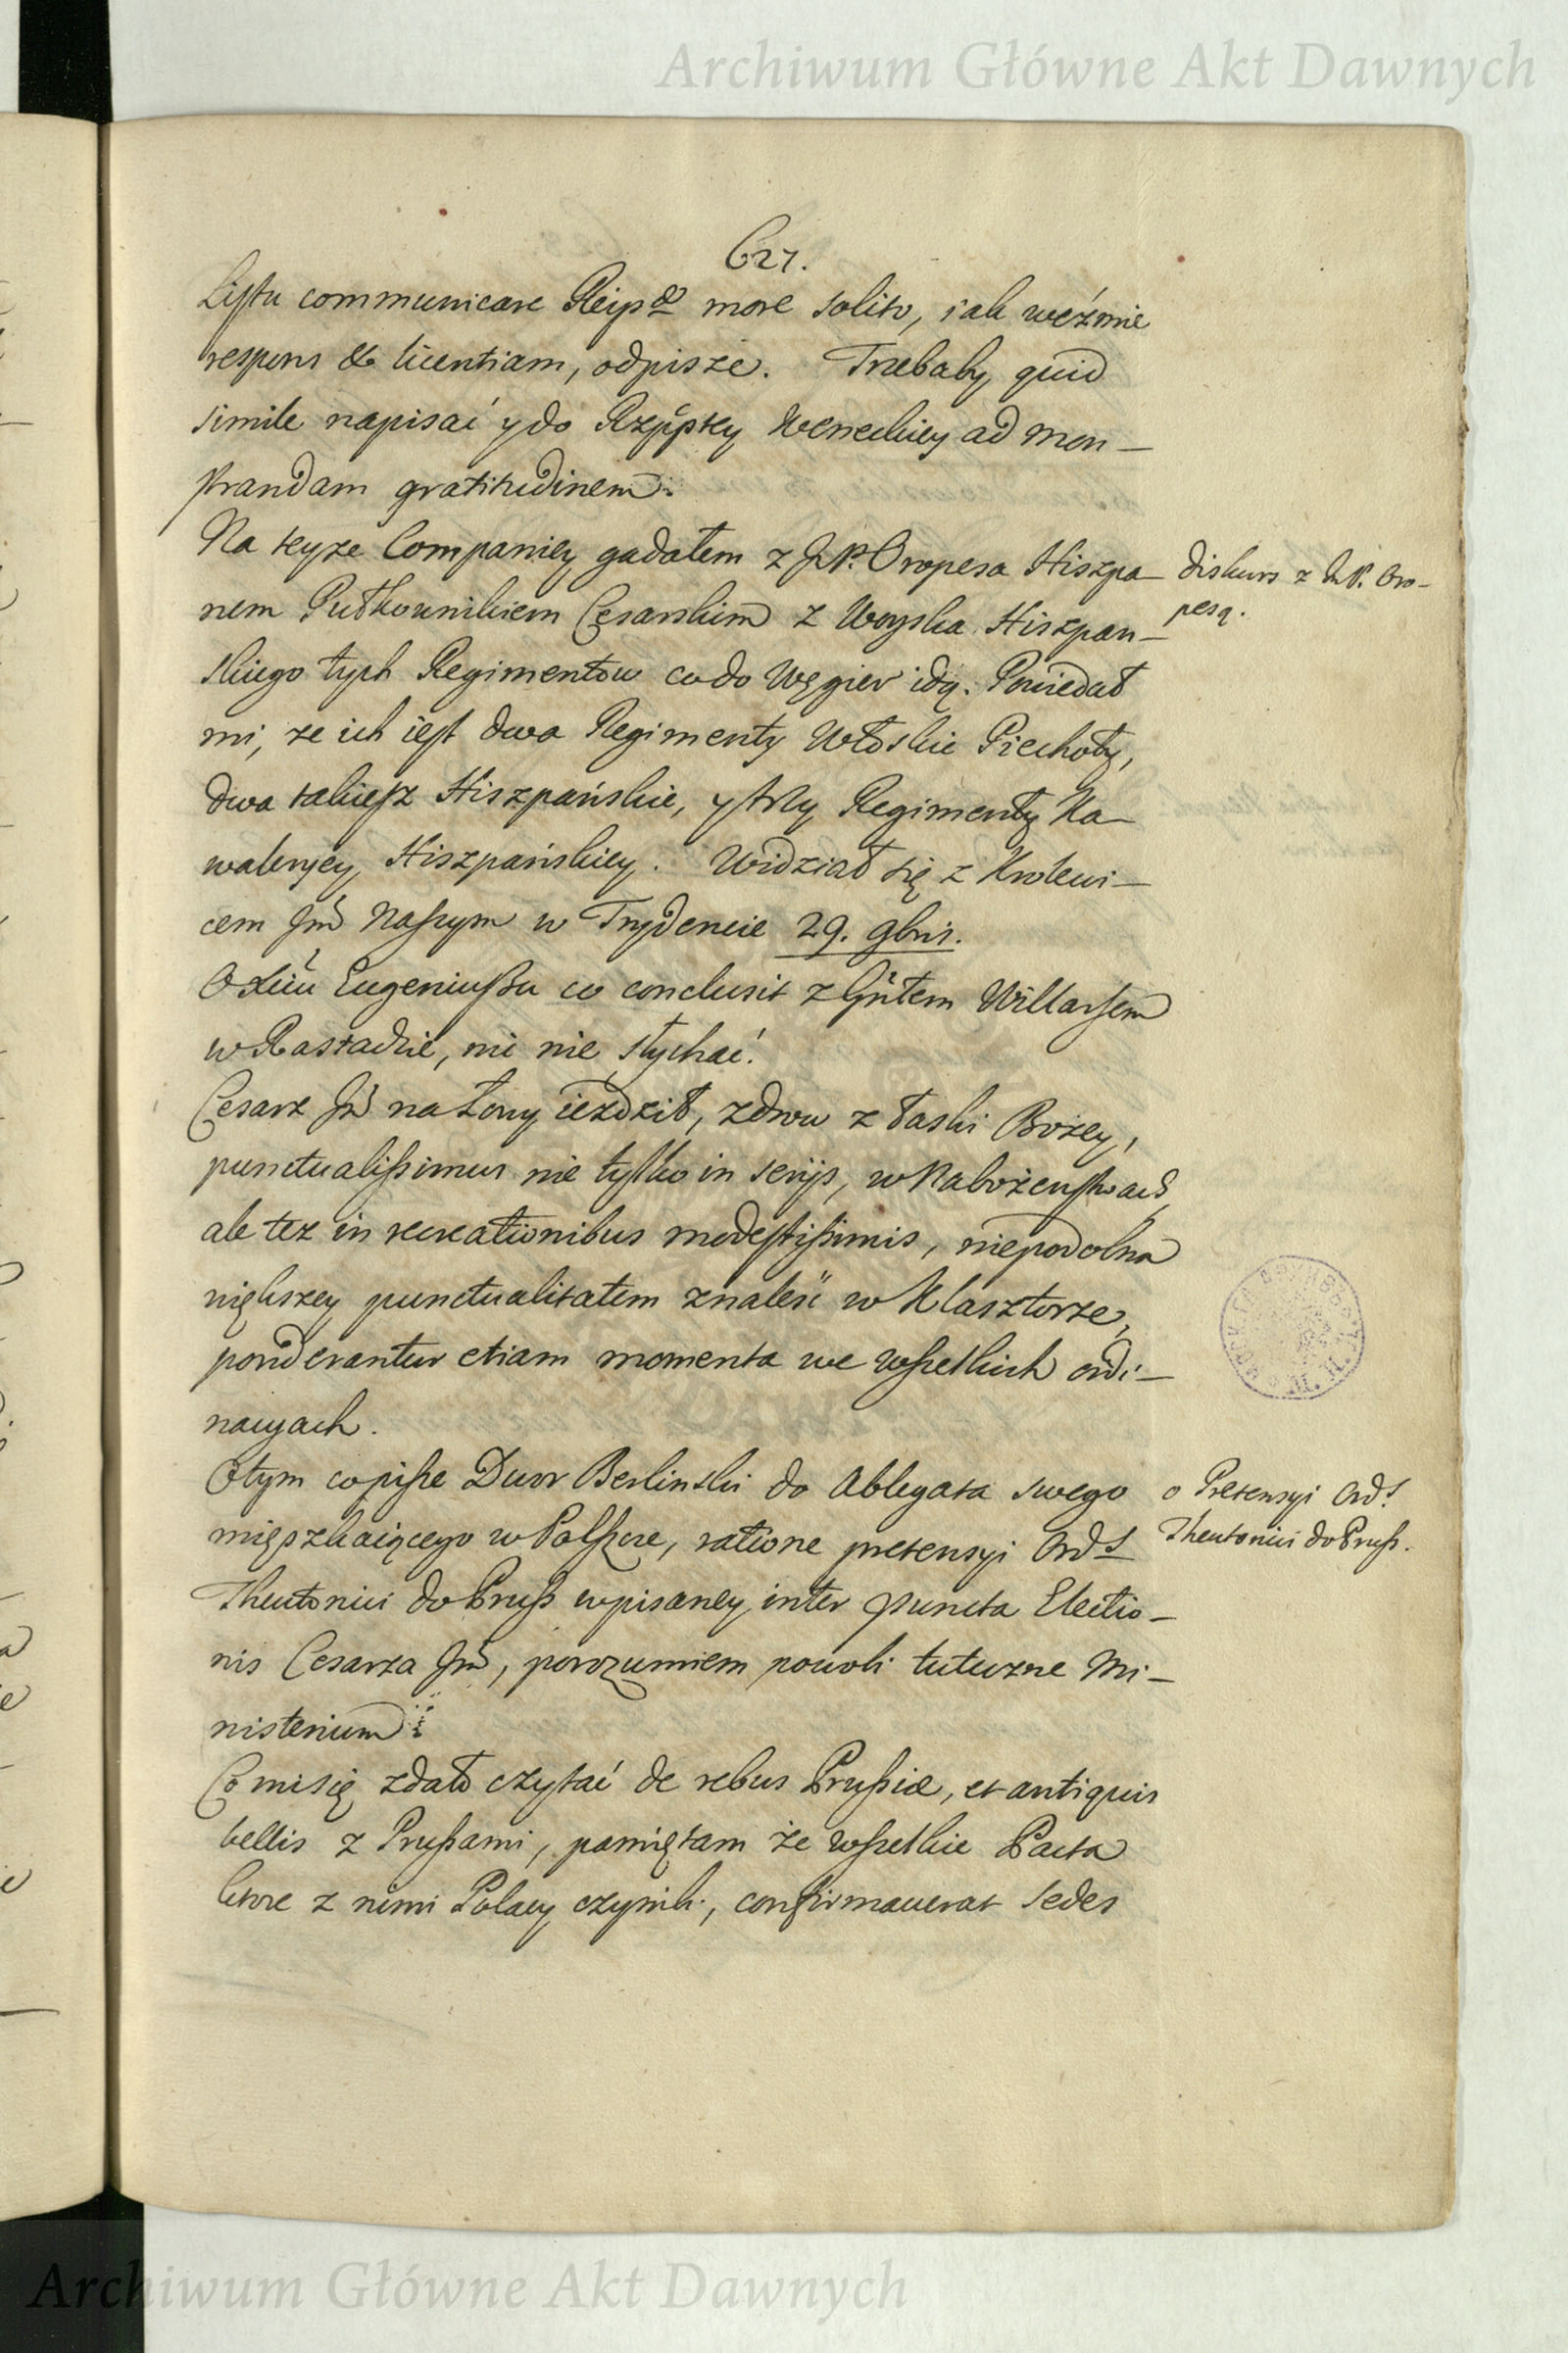 Archiwum Główne Akt Dawnych
627.
Listu communicare Reipce more solito, iak weźmie
respons & licentiam, odpisze. Trzebaby quid
simile napisać y do Rzptey Weneckiey ad mon-
strandam gratitudinem.
Na teyże Companiey gadałem z JP. Oropesa Hiszpa-
nem Pułkownikiem Cesarskim z Woyska Hiszpan-
skiego tych Regimentow co do Węgier idą. Powiedał
mi, ze ich iest dwa Regimenty Włoskie Piechoty,
dwa takiesz Hiszpańskie, y trzy Regimenty Ka-
waleryey Hiszpańskiey. Widział się z Krolewi-
cem Jmć Naszym w Trydencie 29. 9bris.
O Xciu Eugeniuszu co conclusit z Gnłem Willarsem
w Rastadzie, nic nie słychać.
Cesarz Jmć na Łowy iezdził, zdrow z łaski Bozey,
punctualissimus nie tylko in serijs, w Nabożeństwach,
ale tez in recreationibus modestissimis, niepodobna
większey punctualitatem znaleść w Klasztorze,
ponderantur etiam momenta we wszelkich ordi-
nacyach.
O tym co pisze Dwor Berlinski do Ablegata swego
mięszkaiącego w Polszcze, ratione pretensyi Ords
Theutonici do Pruss wpisaney inter puncta Electio-
nis Cesarza Jmć, porozumiem powoli tuteczne Mi-
nisterium
Co mi się zdało czytać de rebus Prussiae, et antiquis
bellis z Prussami, pamiętam że wszelkie Pacta
ktore z nimi Polacy czynili, confirmaverat Sedes
diskurs z JP. Oro-
pesą.
o Pretensyi Ords
Theutonici do Pruss.
Archiwum Główne Akt Dawnych